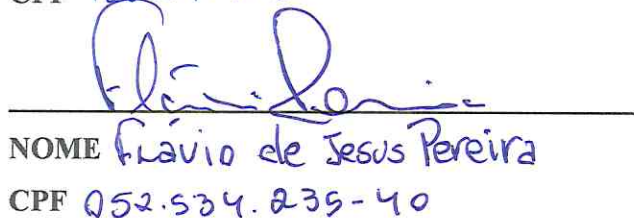 CPF
NOME Flávio de Jesus Pereira
CPF 052.534.235-40